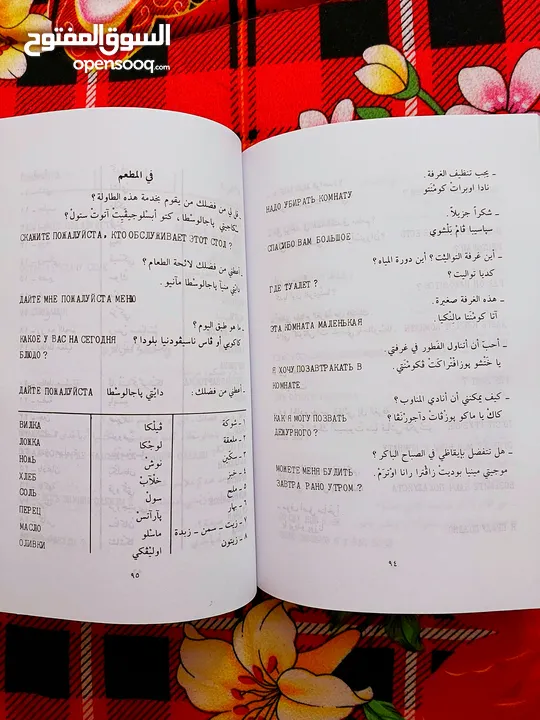 السوق المفتوح
opensooq.com
ـ يجب تنظيف الغرفة .
نادا اوبرات كومْنتو
НАДО УБИРАТЬ КОМНАТУ
ـ شكراً جزيلاً .
سپاسيبا ڤامْ بَلْشوي
СПАСИБО ВАМ БОЛЬШОЕ
ـ أين غرفة التواليت ؟ أين دورة المياه ؟
كديا تواليت ؟
ГДЕ ТУАЛЕТ ?
ـ هذه الغرفة صغيرة .
آتا كومْنتا مالِنْكيا .
ЭТА КОМНАТА МАЛЕНЬКАЯ
ـ أحبّ أن أتناول الفَطور في غرفتي .
يا خَتْشو پوزافتراكَتْ ڤكومْنتي .
Я ХОЧУ ПОЗАВТРАКАТЬ В
КОМНАТЕ
ـ كيف يمكنني أن أنادي المناوب ؟
كاك يا ماكو پوزْڤاتْ دآجورْنْڤا ؟
КАК Я МОГУ ПОЗВАТЬ
ДЕЖУРНОГО ?
ـ هل تتفضل بإيقاظي في الصباح الباكر ؟
موجيتي مينيا بوديتْ زاڤترا رانا اوترَمْ .
МОЖЕТЕ МЕНЯ БУДИТЬ
ЗАВТРА РАНО УТРОМ ?
٩٤
في المطعم
ـ قل لي من فضلك من يقوم بخدمة هذه الطاولة ؟
СКАЖИТЕ ПОЖАЛУЙСТА, КТО ОБСЛУЖИВАЕТ ЭТОТ СТОЛ ?
ـ أعطني من فضلك لائحة الطعام ؟
دايتي منيآ پاجالوسْطا مآنيو .
ДАЙТЕ МНЕ ПОЖАЛУЙСТА МЕНЮ
ـ ما هو طبق اليوم ؟
كاكوي أو ڤاس ناسيڤودنيا بلودا ؟
КАКОЕ У ВАС НА СЕГОДНЯ
БЛЮДО ?
ـ أعطني من فضلك : دايتي پاجالوسْطا
ДАЙТЕ ПОЖАЛУЙСТА
١ ـ شوكة ڤيلْكا ВИЛКА
٢ ـ ملعقة لوجْكا ЛОЖКА
٣ ـ سكّين نوشْ НОЖЬ
٤ ـ خبز خْلآبْ ХЛЕБ
٥ ـ ملح سولْ СОЛЬ
٦ ـ بهار پآرآتسْ ПЕРЕЦ
٧ ـ زيت ـ سمن ـ زبدة ماسْلو МАСЛО
٨ ـ زيتون اوليڤكي ОЛИВКИ
٩٥